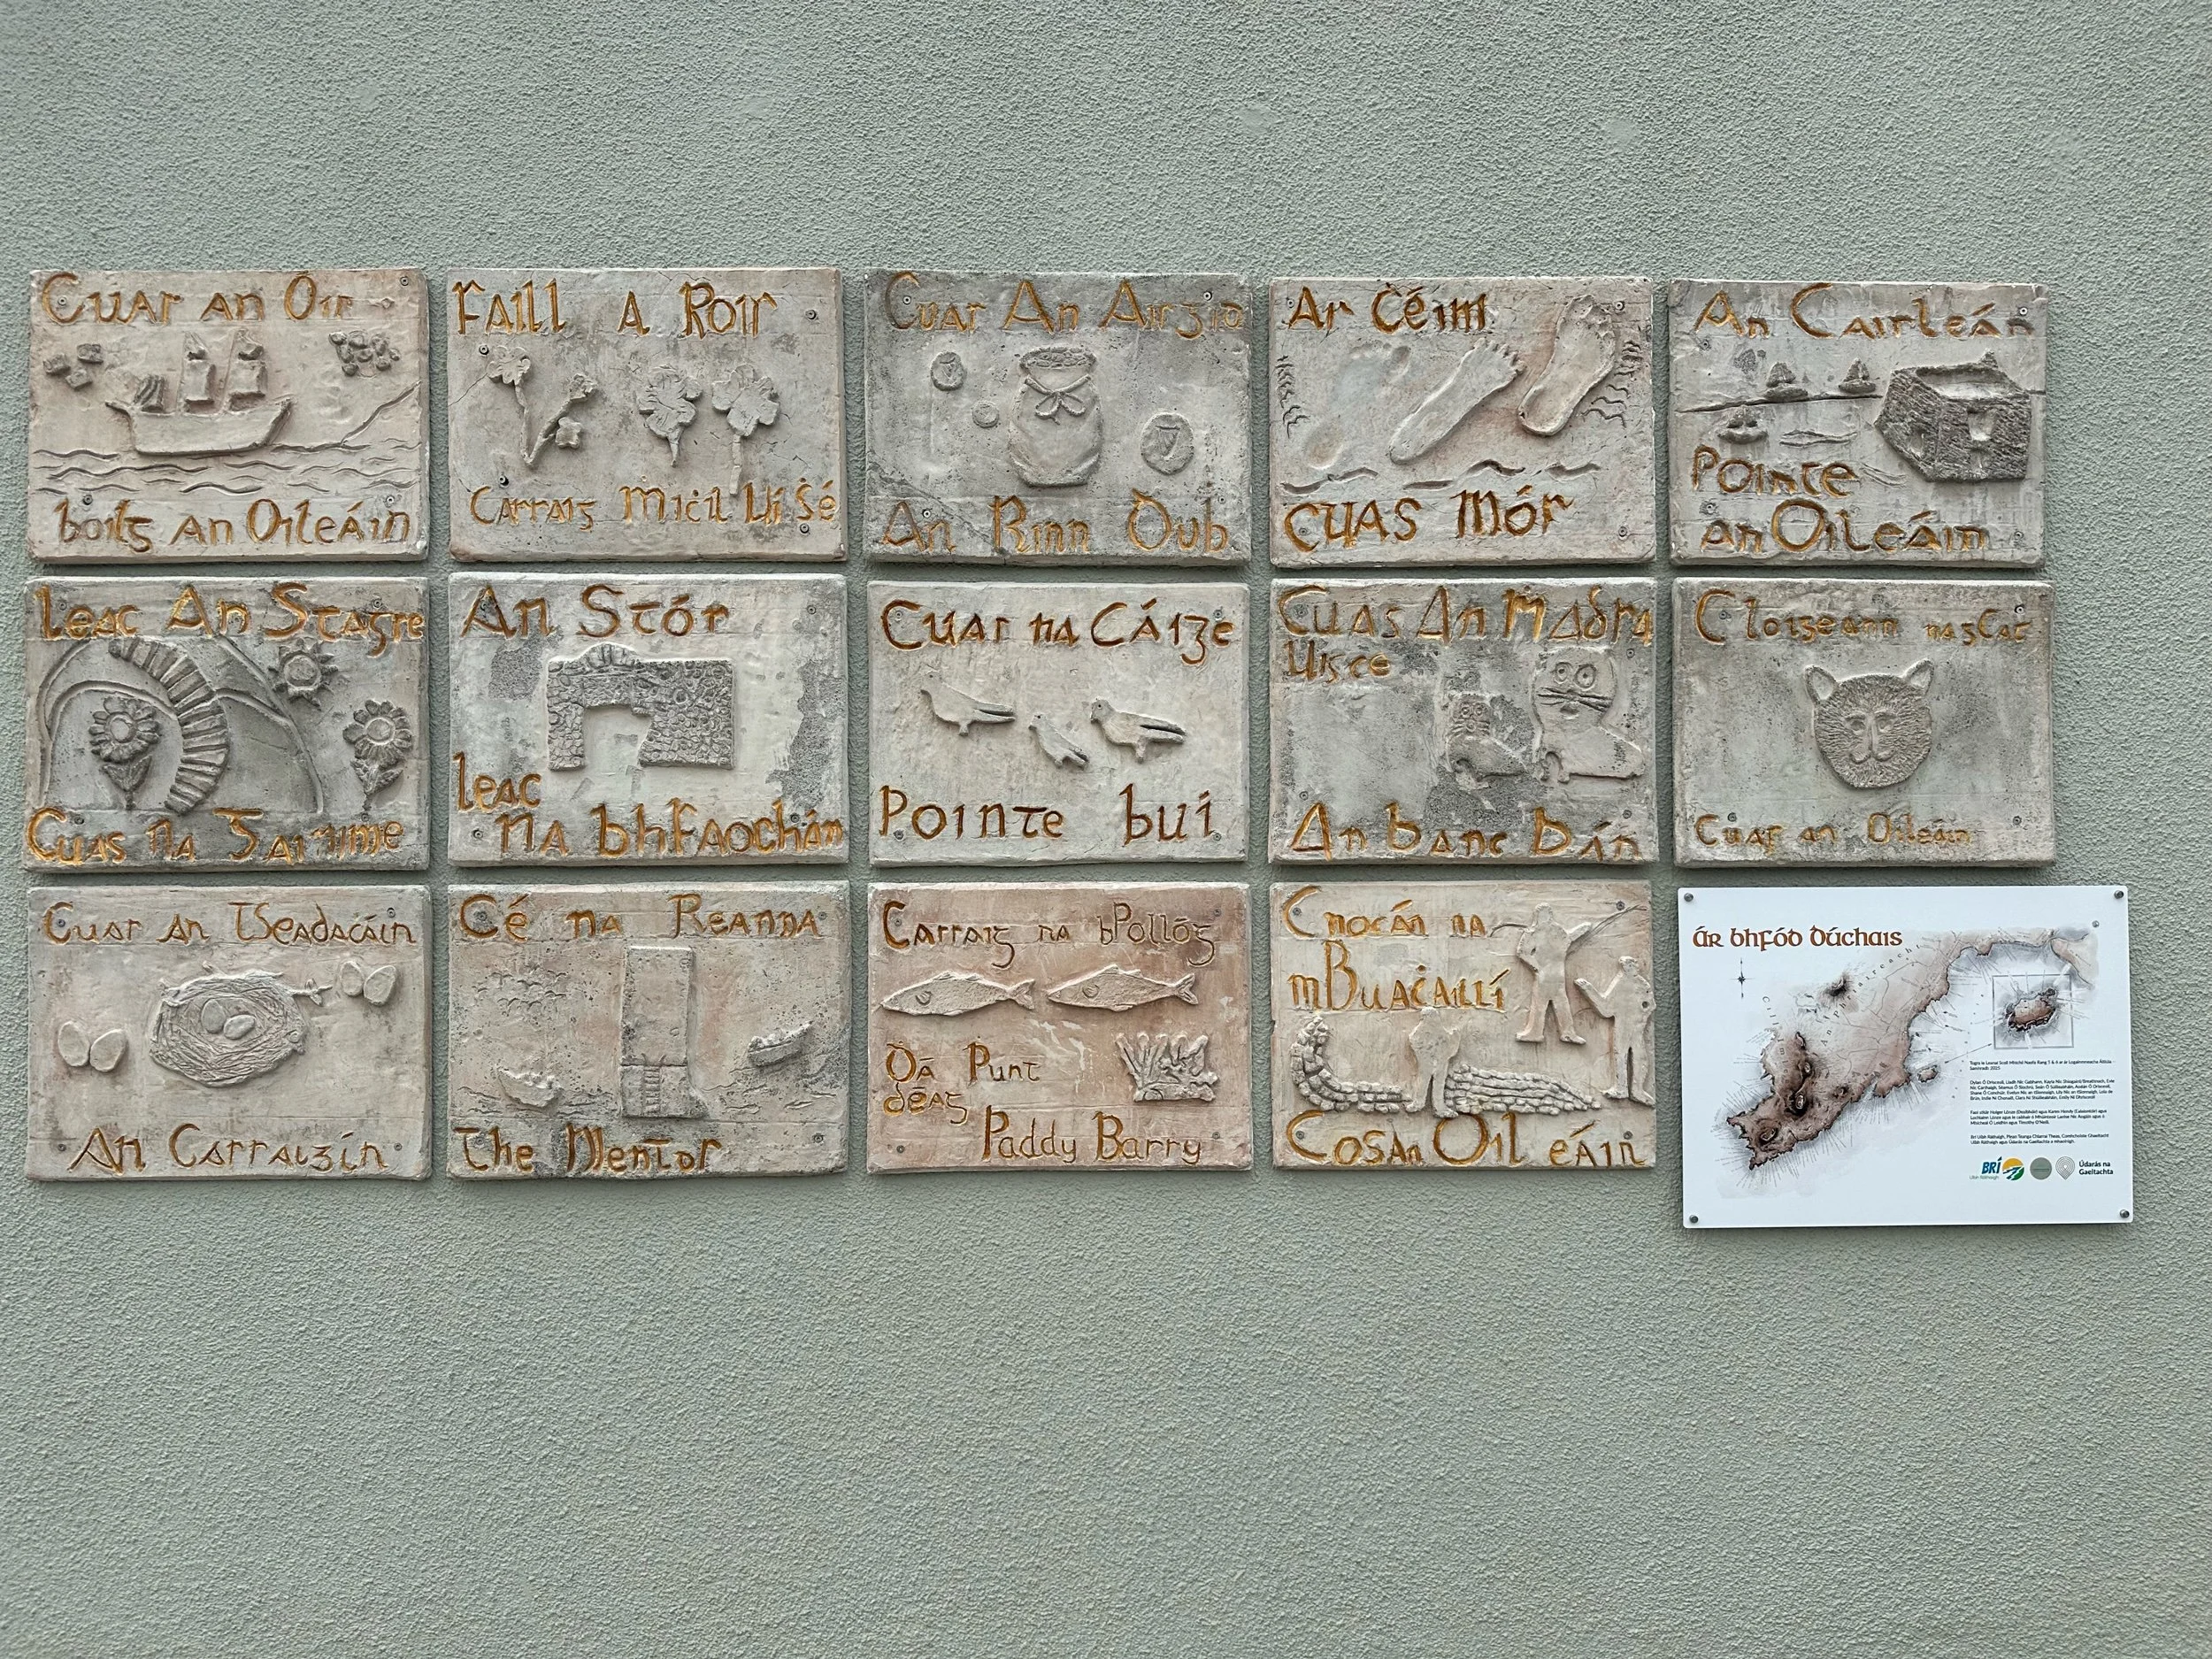 Cuas an Óir
boilg an Oileáin
Faill a Rois
Carraig Miċíl Uí Ṡé
Cuas An Airgid
An Rinn Dub
Ar Ċéim
CUAS Mór
An Caisleán
Pointe
an Oileáin
Leac An Stagre
Cuas na
An Stór
Leac
na bhFaochán
Cuas na Cáige
Pointe buí
Cuas An Madra
Uisce
An banc Bán
Cloigeann na gCat
Cuas an Oileáin
Cuas An TSeadacáin
An Carraigín
Cé na Reanna
The Mentor
Carraig na bPollóg
Dá Punt
déag
Paddy Barry
Cnocán na
mBuaċaillí
Cosán Oileáin
Ár bhfód dúchais
BRÍ
Uíbh Ráthaigh
Údarás na
Gaeltachta